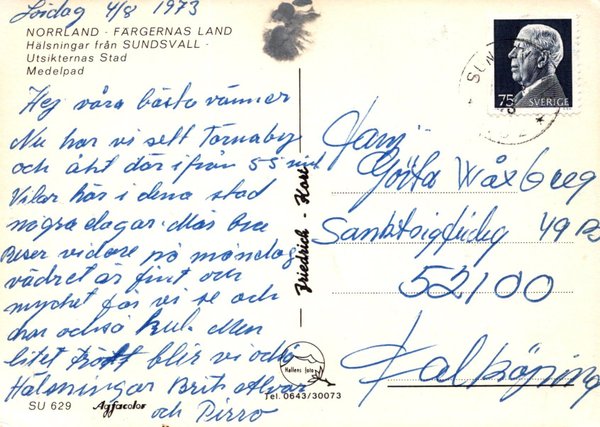 Lördag 4/8 1973
NORRLAND - FÄRGERNAS LAND
Hälsningar från SUNDSVALL -
Utsikternas Stad
Medelpad
Hej våra bästa vänner
Nu har vi sett Tärnaby
och åkt därifrån 55 mil
Vilar här i dena stad
några dagar. Mår bra
Reser vidare på måndag
vädret är fint och
mycket får vi se och
har också kul. Men
litet trött blir vi också
Hälsningar Brit Alvar
och Pirro
SU 629 Agfacolor
Friedrich - Kort
Hallens foto
Tel. 0643/30073
75 SVERIGE
SUN
Fam.
Gösta Waxberg
49
52100
Falköping